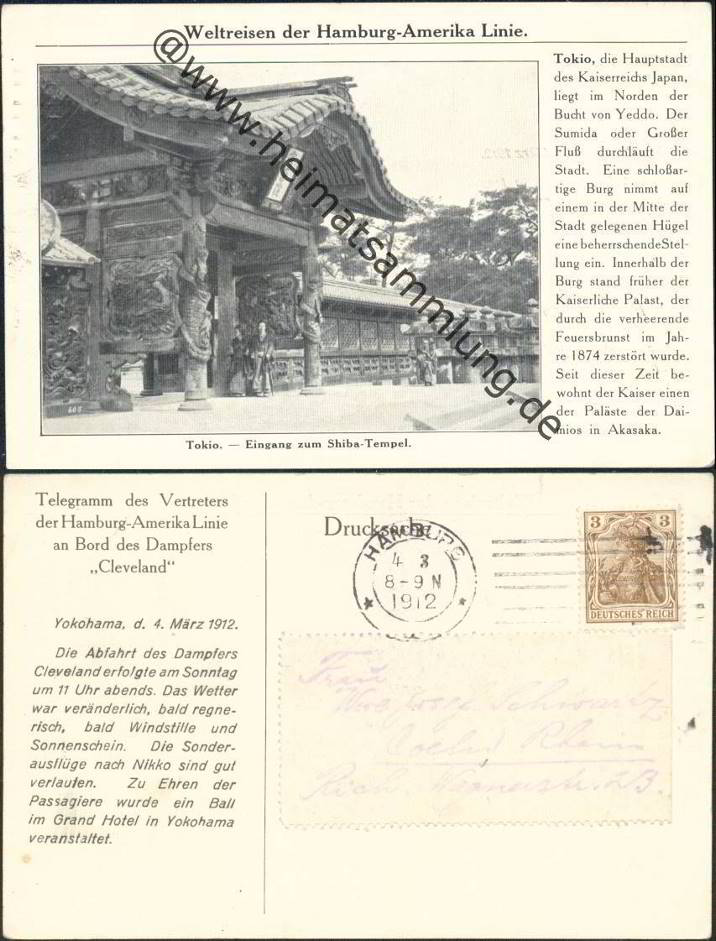 Weltreisen der Hamburg-Amerika Linie.
@www.heimatsammlung.de
Tokio, die Hauptstadt
des Kaiserreichs Japan,
liegt im Norden der
Bucht von Yeddo. Der
Sumida oder Großer
Fluß durchläuft die
Stadt. Eine schloßar-
tige Burg nimmt auf
einem in der Mitte der
Stadt gelegenen Hügel
eine beherrschende Stel-
lung ein. Innerhalb der
Burg stand früher der
Kaiserliche Palast, der
durch die verheerende
Feuersbrunst im Jah-
re 1874 zerstört wurde.
Seit dieser Zeit be-
wohnt der Kaiser einen
der Paläste der Dai-
mios in Akasaka.
Tokio. — Eingang zum Shiba-Tempel.
Telegramm des Vertreters
der Hamburg-Amerika Linie
an Bord des Dampfers
„Cleveland“
Yokohama, d. 4. März 1912.
Die Abfahrt des Dampfers
Cleveland erfolgte am Sonntag
um 11 Uhr abends. Das Wetter
war veränderlich, bald regne-
risch, bald Windstille und
Sonnenschein. Die Sonder-
ausflüge nach Nikko sind gut
verlaufen. Zu Ehren der
Passagiere wurde ein Ball
im Grand Hotel in Yokohama
veranstaltet.
Drucksache
HAMBURG
4 3
8-9 N
1912
3 3
DEUTSCHES REICH
Frau
Schwartz
Rhein